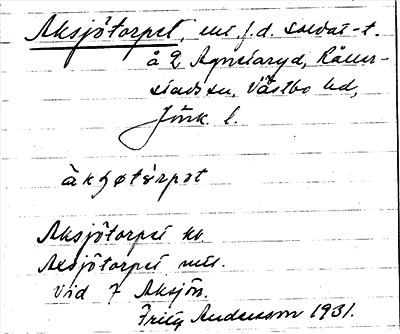 Aksjötorpet, utt f.d. soldat-t.
å 2 Agnetaryd, Råller-
stads sn, Västbo hd,
Jönk. l.
àkʃøtɷrpət
Aksjötorpet kk.
Aksjötorpet mtl.
Vid 7 Aksjön.
Fritz Andersson 1931.